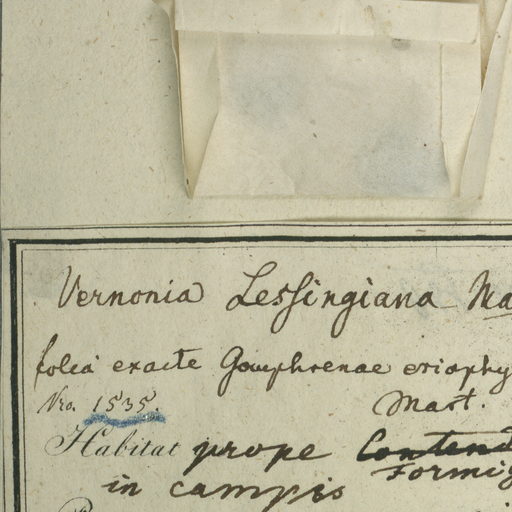 Vernonia Lessingiana
folia exacte Gomphrenae eriophy
Nro. 1535. Mart.
Habitat prope Contend
Formig
in campis